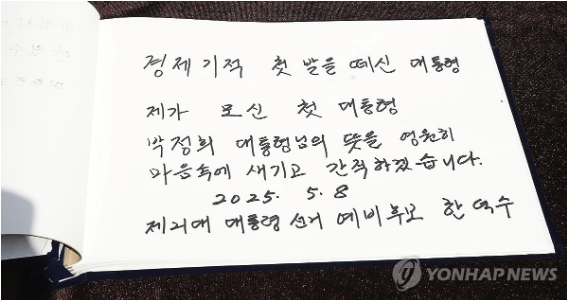 경제기적 첫 발을 떼신 대통령
제가 모신 첫 대통령
박정희 대통령님의 뜻을 영원히
마음속에 새기고 간직하겠습니다.
2025. 5. 8
제21대 대통령선거 예비후보 한덕수
YONHAPNEWS